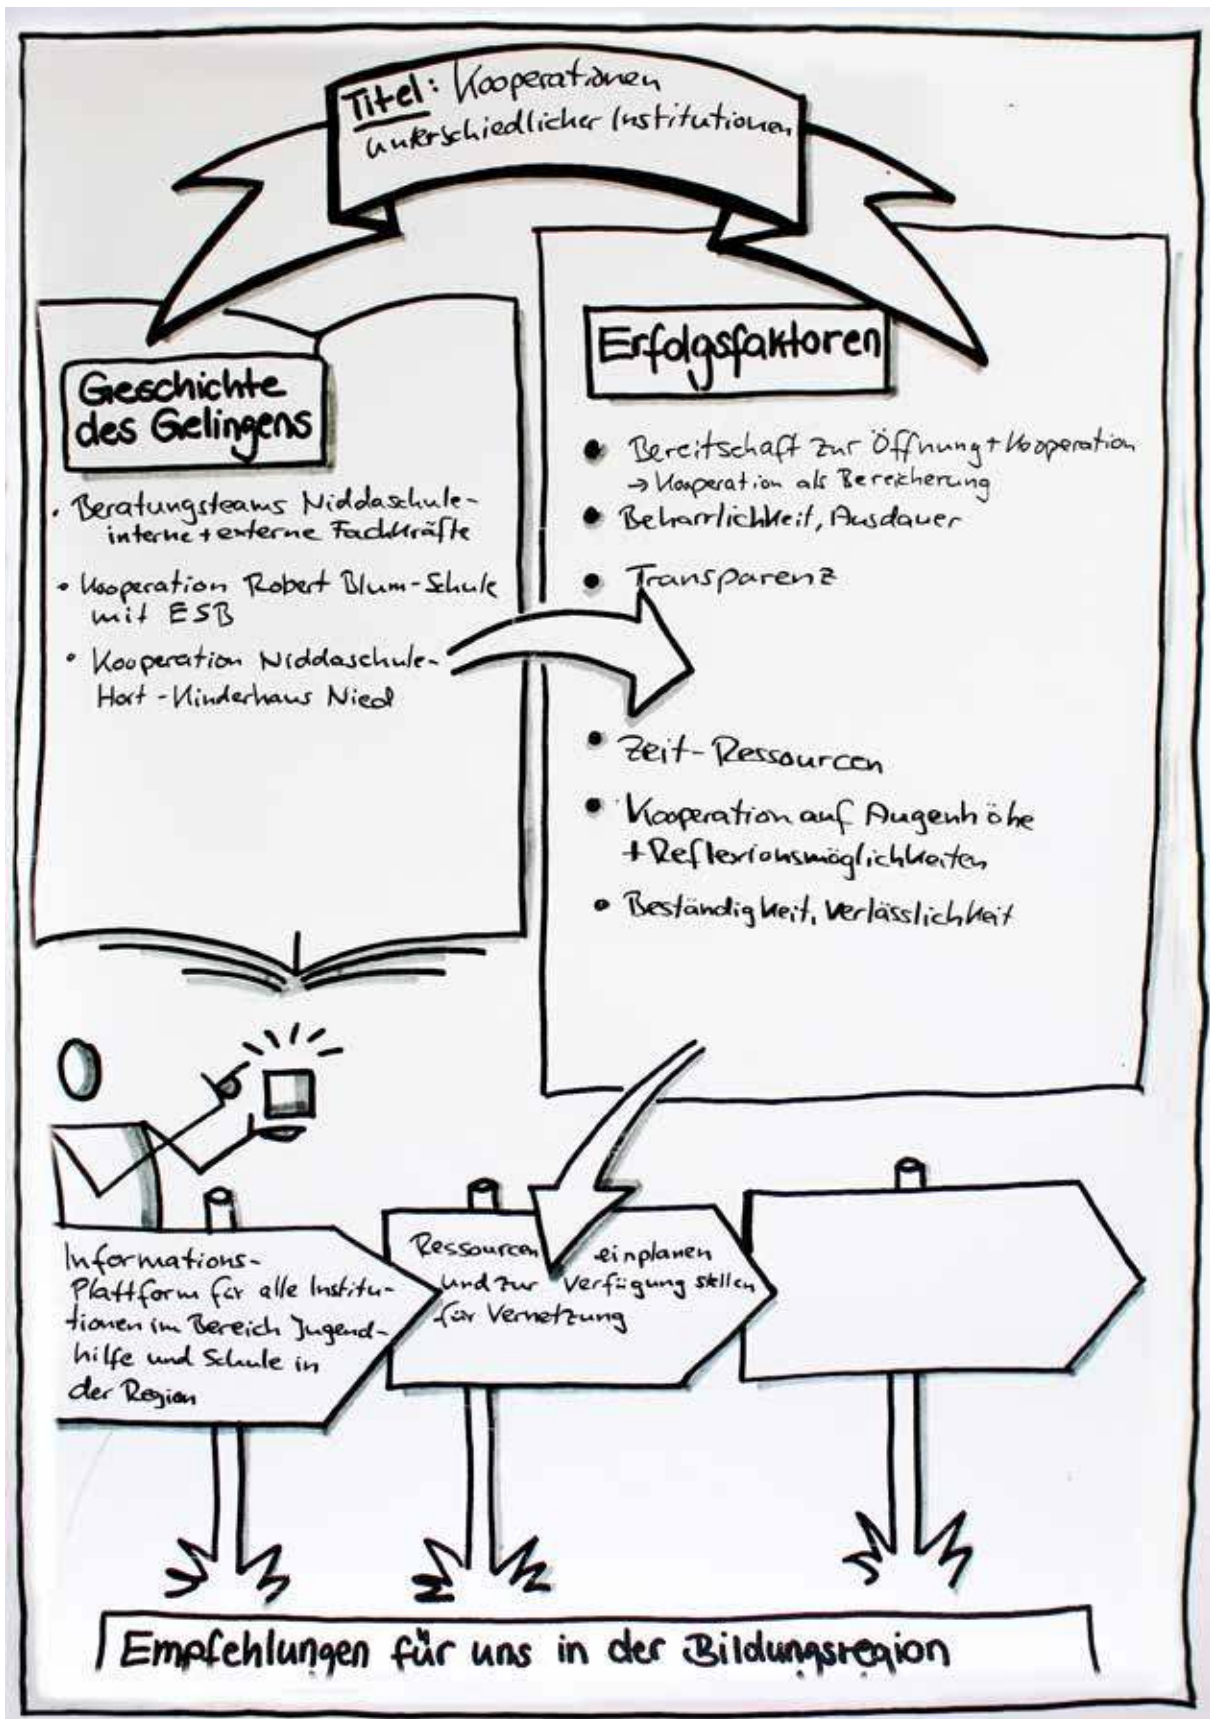 Titel: Kooperationen
unterschiedlicher Institutionen
Geschichte
des Gelingens
• Beratungsteams Niddaschule-
interne + externe Fachkräfte
• Kooperation Robert Blum-Schule
mit ESB
• Kooperation Niddaschule-
Hort - Kinderhaus Nied
Erfolgsfaktoren
• Bereitschaft zur Öffnung + Kooperation
→ Kooperation als Bereicherung
• Beharrlichkeit, Ausdauer
• Transparenz
• Zeit-Ressourcen
• Kooperation auf Augenhöhe
+ Reflexionsmöglichkeiten
• Beständigkeit, Verlässlichkeit
Informations-
Plattform für alle Institu-
tionen im Bereich Jugend-
hilfe und Schule in
der Region
Ressourcen einplanen
und zur Verfügung stellen
für Vernetzung
Empfehlungen für uns in der Bildungsregion